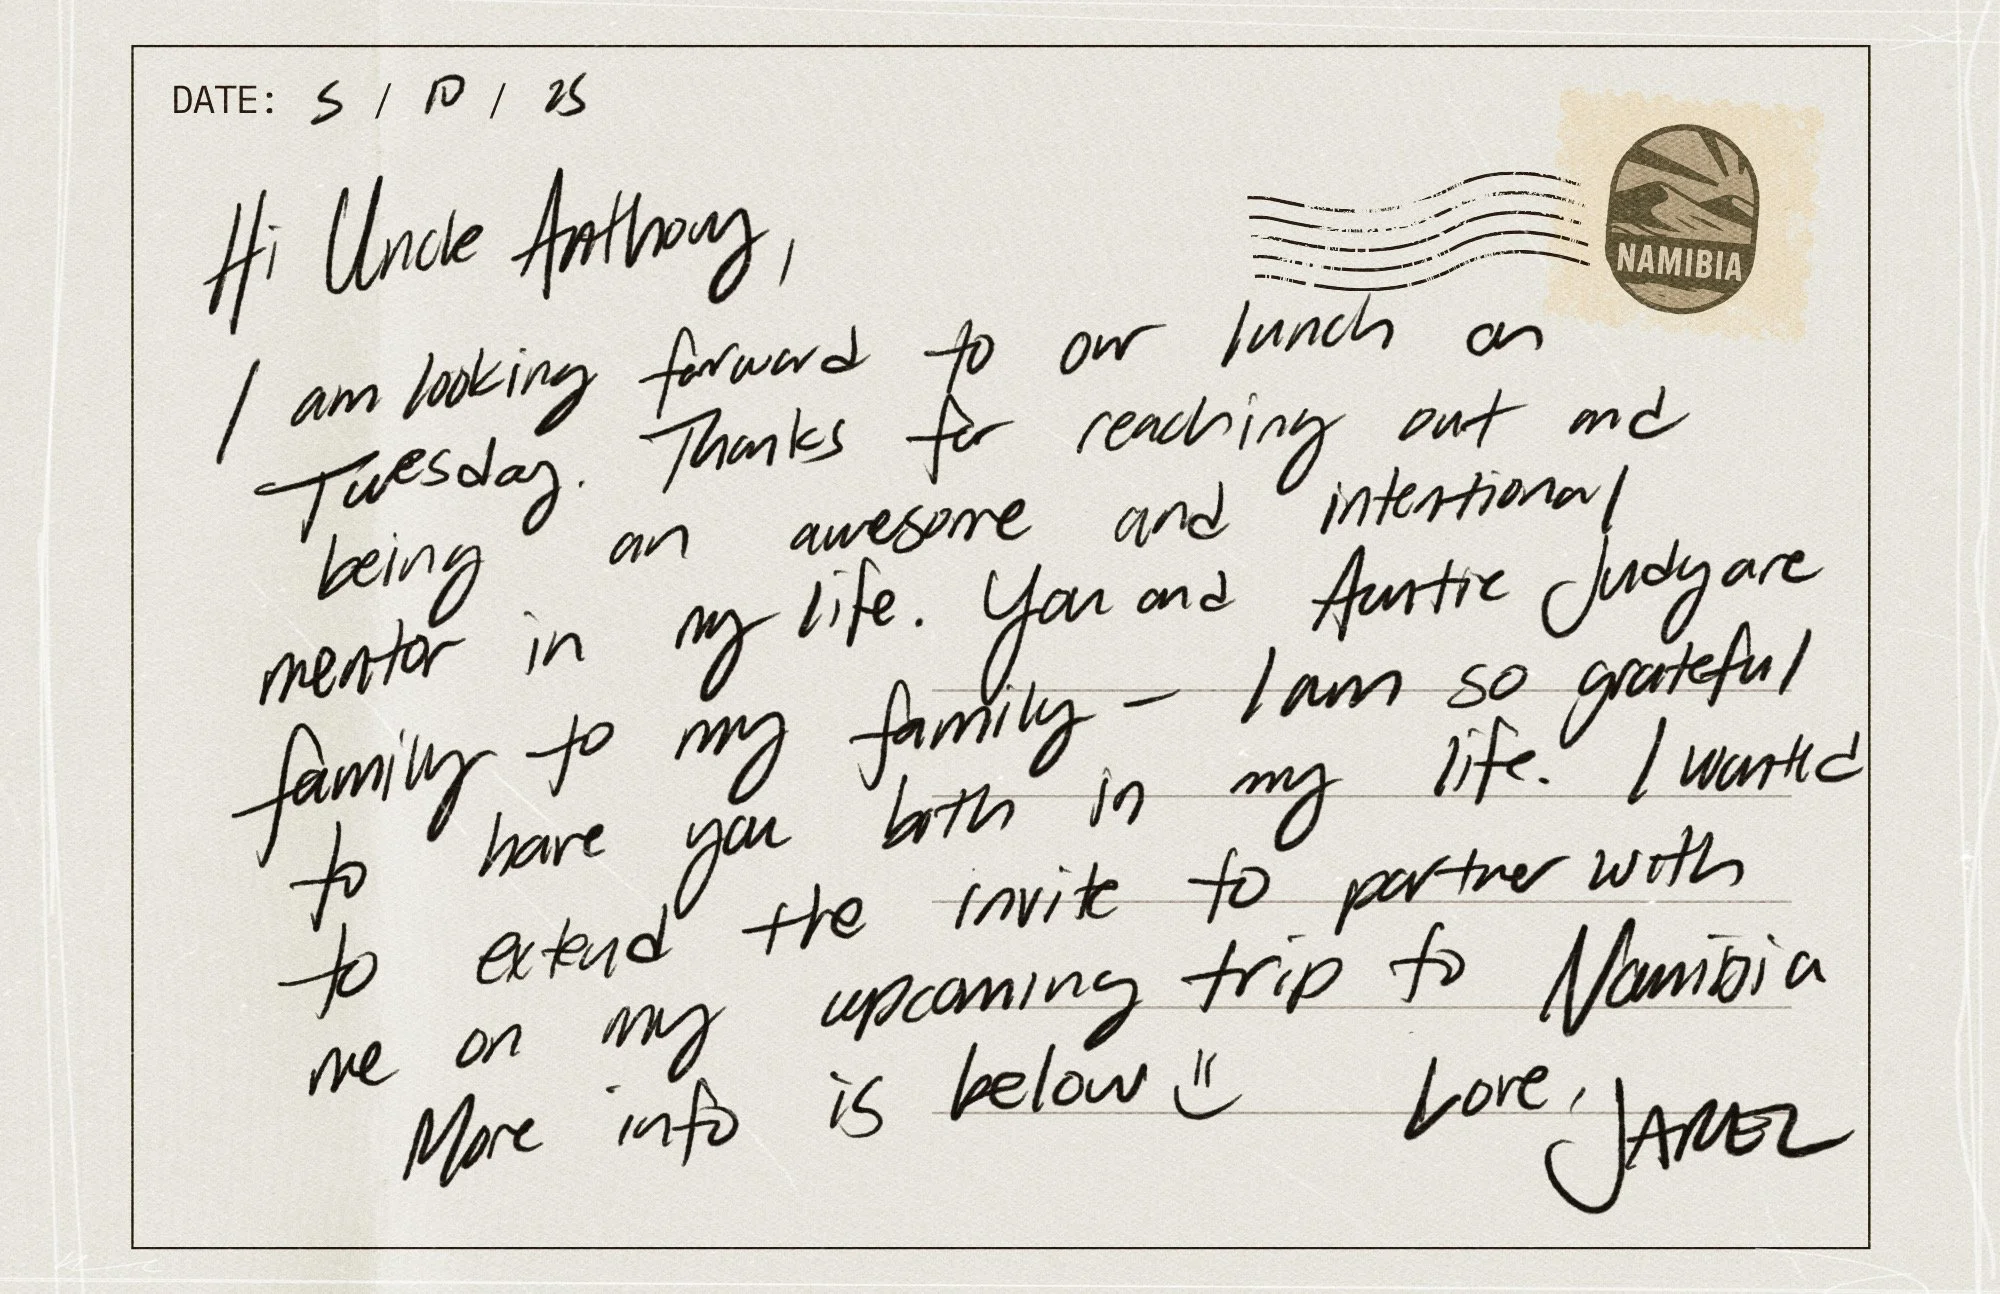 DATE: 5 / 10 / 25
NAMIBIA
Hi Uncle Anthony,
I am looking forward to our lunch on
Tuesday. Thanks for reaching out and
being an awesome and intentional
mentor in my life. You and Auntie Judy are
family to my family – I am so grateful
to have you both in my life. I wanted
to extend the invite to partner with
me on my upcoming trip to Namibia
More info is below =)
Love,
JAREZ